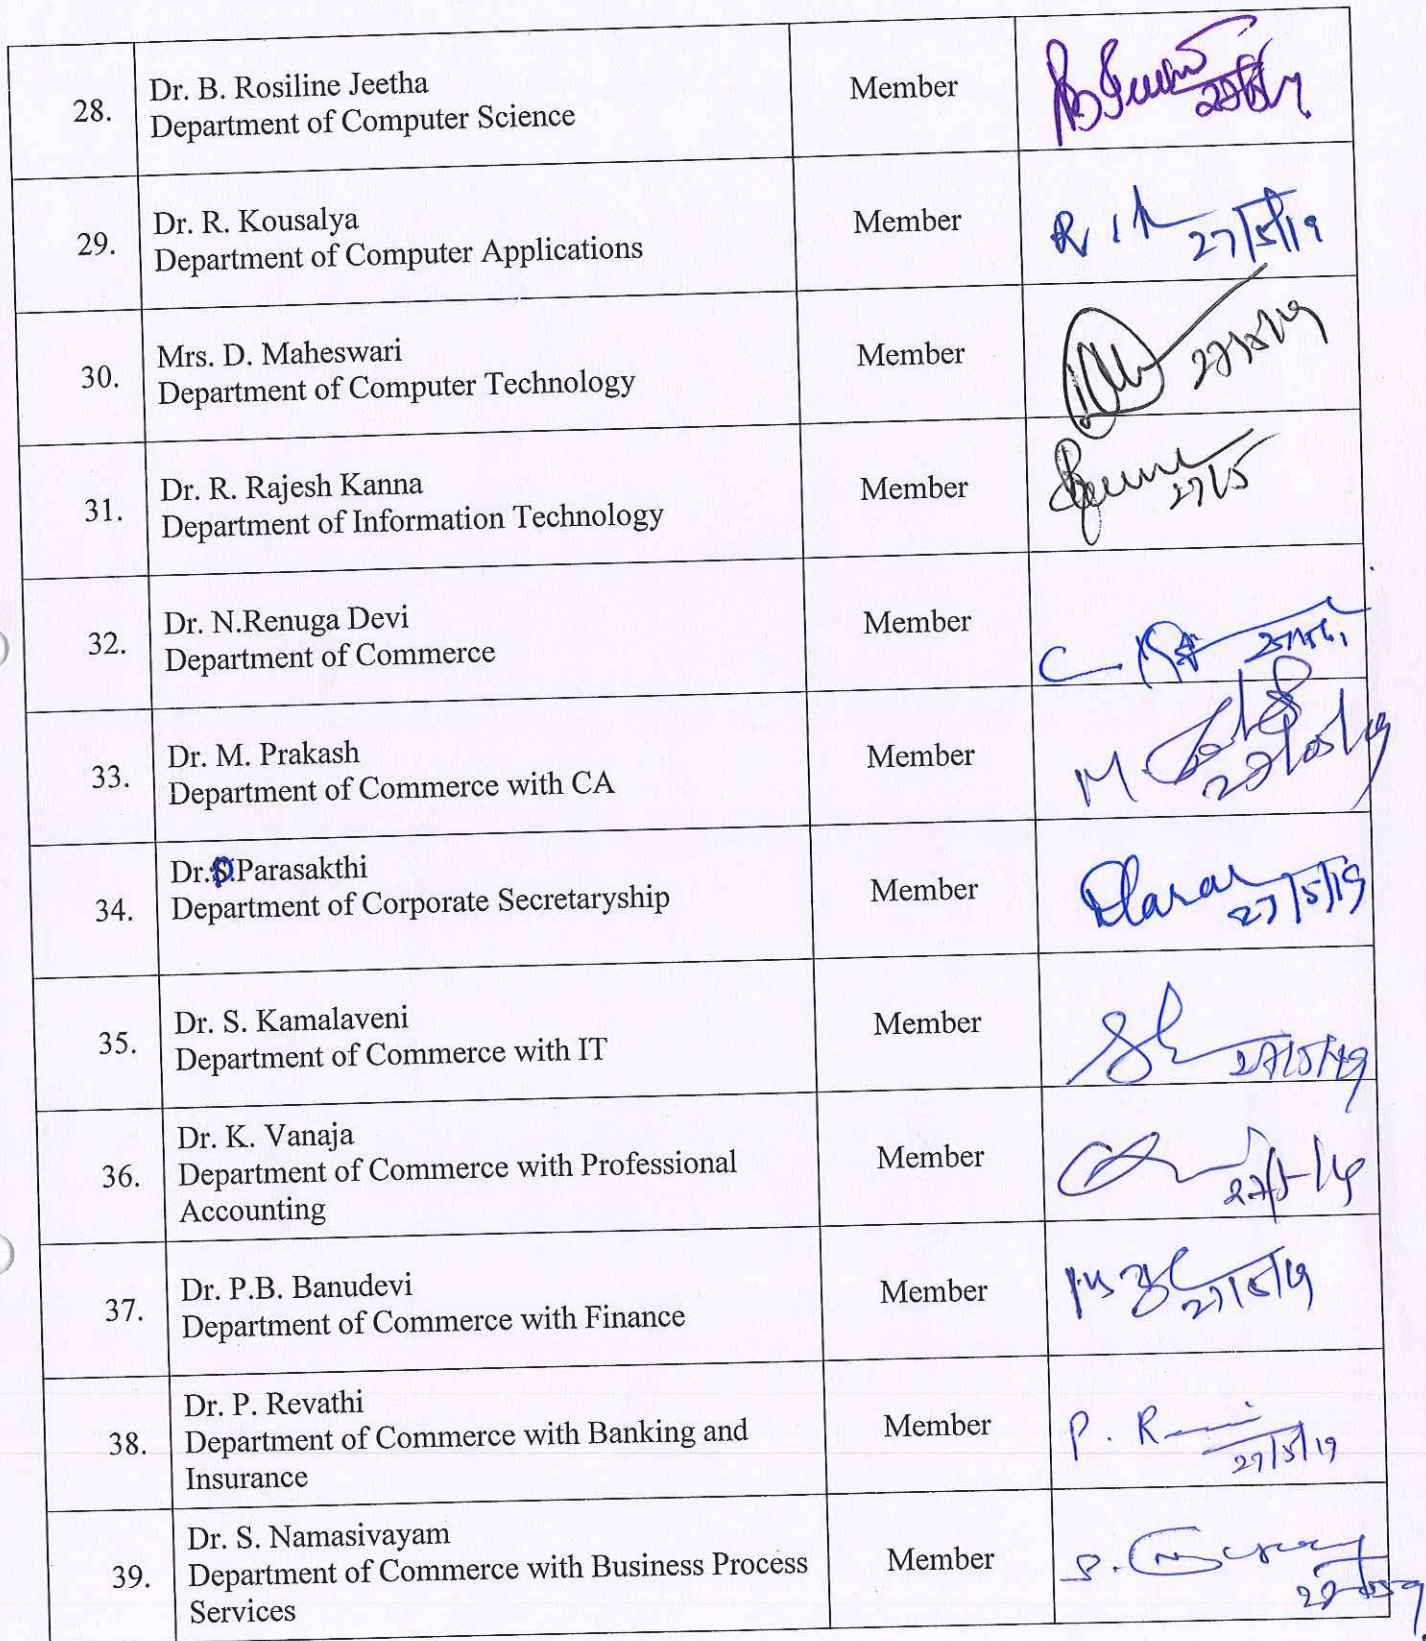 28.
Dr. B. Rosiline Jeetha
Department of Computer Science
Member
29.
Dr. R. Kousalya
Department of Computer Applications
Member
27/5/19
30.
Mrs. D. Maheswari
Department of Computer Technology
Member
27/5/19
31.
Dr. R. Rajesh Kanna
Department of Information Technology
Member
27/5
32.
Dr. N.Renuga Devi
Department of Commerce
Member
33.
Dr. M. Prakash
Department of Commerce with CA
Member
M.
27/05/19
34.
Dr. Parasakthi
Department of Corporate Secretaryship
Member
27/5/19
35.
Dr. S. Kamalaveni
Department of Commerce with IT
Member
27/5/19
36.
Dr. K. Vanaja
Department of Commerce with Professional
Accounting
Member
37.
Dr. P.B. Banudevi
Department of Commerce with Finance
Member
27/5/19
38.
Dr. P. Revathi
Department of Commerce with Banking and
Insurance
Member
P. R
27/5/19
39.
Dr. S. Namasivayam
Department of Commerce with Business Process
Services
Member